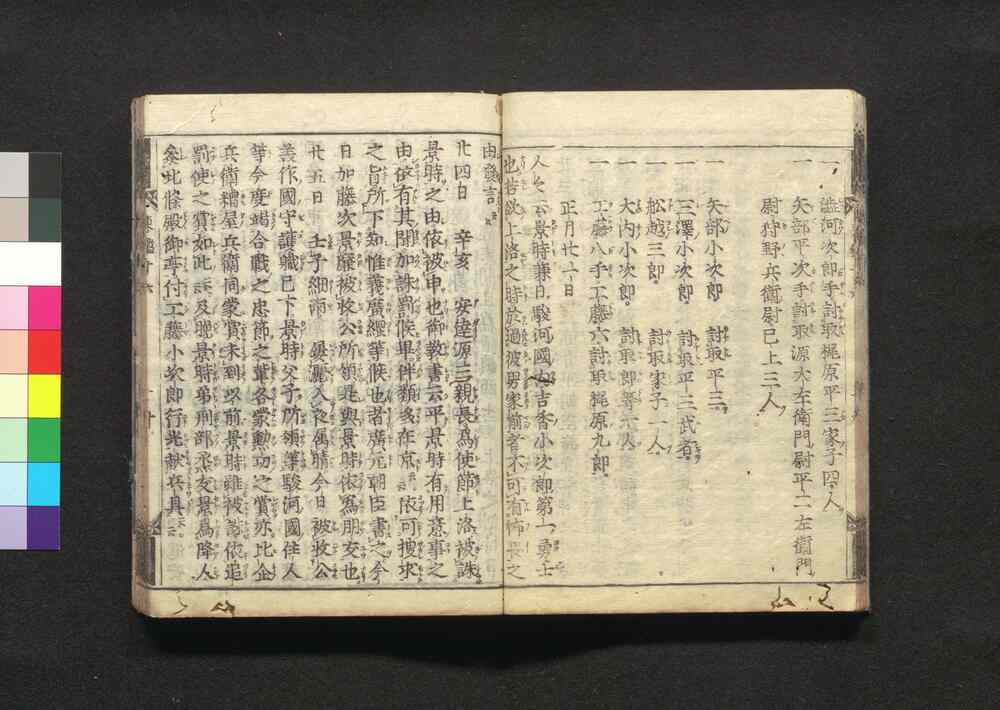 一 澁河次郎手討取梶原平三家子四人
一 矢部平次手討取源太左衛門尉平二左衛門
尉狩野兵衛尉已上三人
一 矢部小次郎 討取平三
一 三澤小次郎 討取平三武者
一 舩越三郎 討取家子一人
一 大内小次郎 討取郎等一人
一 工藤八手工藤六討取梶原九郎
正月廿一日
人々云景時兼日駿河國内吉香小次郎第一勇士
也若欲上洛之時於過彼男家前者不可有怖畏之
由發言
廿四日 辛亥 安達源三親長為使節上洛被誅
景時之由依被申也御教書云平景時有用意事之
由依有其聞加誅罰候畢伴類多在京 依可搜求
之旨所下知惟義廣綱等候也者廣元朝臣書之今
日加藤次景廉被收公所領是與景時依為朋友也
廿五日 壬子細雨 鎮 入夜属晴今日被收公
美作國守護職已下景時父子所領等駿河國住人
等今度竭合戰之忠節之輩各蒙勲功之賞亦比企
兵衛糟屋兵衛同蒙賞未到以前景時雖被誅依追
罰使之賞如此 及 景時弟刑部丞友景為降人
參北條殿御亭付工藤小次郎行光献兵具云